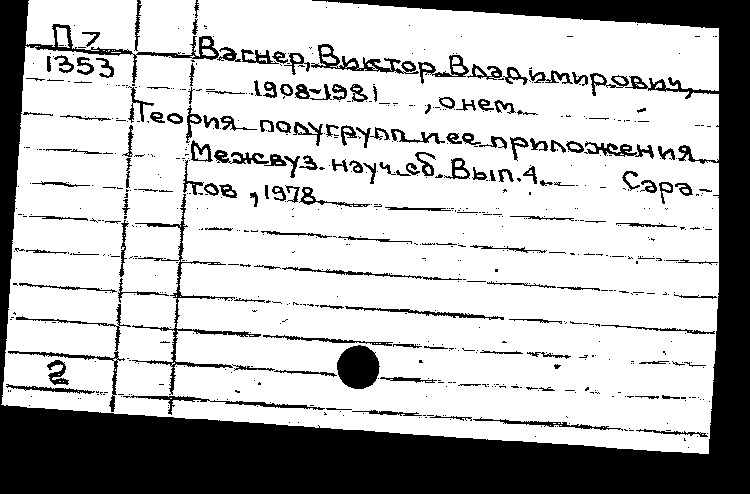 П 7
1353
Вагнер, Виктор Владимирович,
1908-1981 , о нем.
Теория полугрупп и ее приложения.
Межвуз. науч. сб. Вып. 4. Сара-
тов, 1978.
2